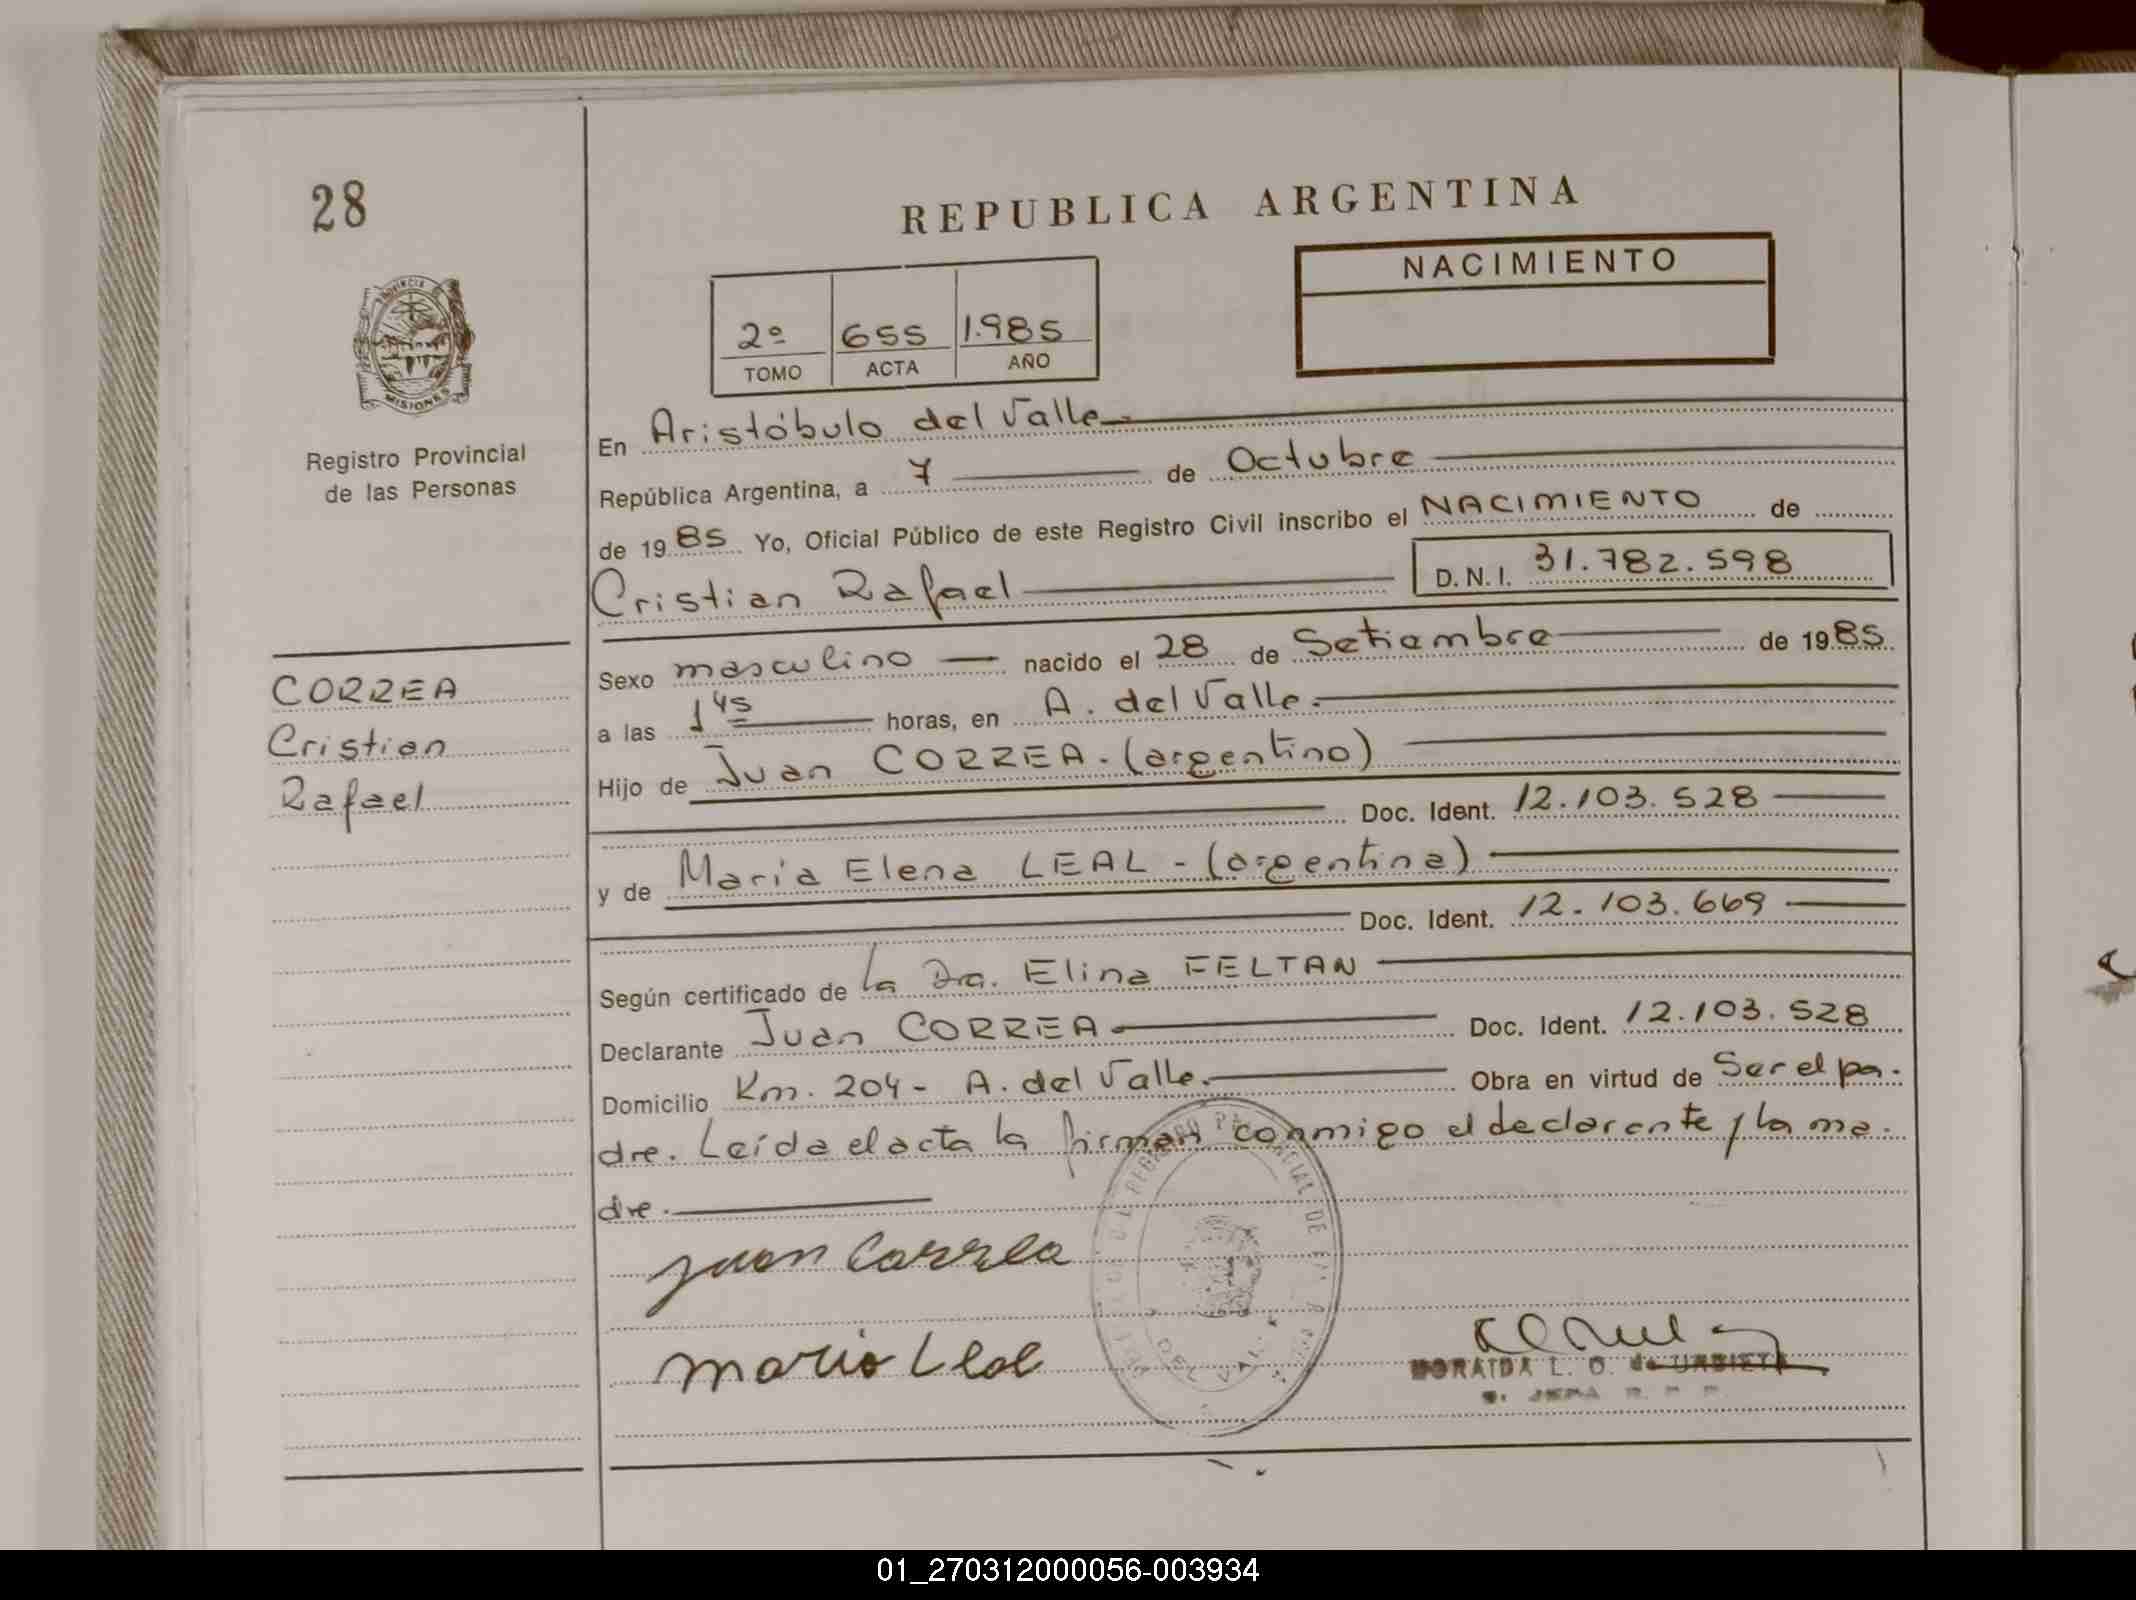 28
REPUBLICA ARGENTINA
NACIMIENTO
2º 655 1.985
TOMO ACTA AÑO
PROVINCIA
MISIONES
Registro Provincial
de las Personas
CORREA
Cristian
Rafael
En Aristóbulo del Valle.
República Argentina, a 7 de Octubre
de 1985 Yo, Oficial Público de este Registro Civil inscribo el NACIMIENTO de
Cristian Rafael D.N.I. 31.782.598
Sexo masculino nacido el 28 de Setiembre de 1985.
a las 1 45 horas, en A. del Valle.
Hijo de Juan CORREA. (argentino)
Doc. Ident. 12.103.528
y de María Elena LEAL - (argentina)
Doc. Ident. 12.103.669
Según certificado de la Dra. Elina FELTAN
Declarante Juan CORREA Doc. Ident. 12.103.528
Domicilio Km. 204 - A. del Valle. Obra en virtud de Ser el pa.
dre. Leída el acta la firman conmigo el declarante y la ma.
dre.
Juan Correa
Maria Leal
MORAIDA L. O. de URBIETA
01_270312000056-003934